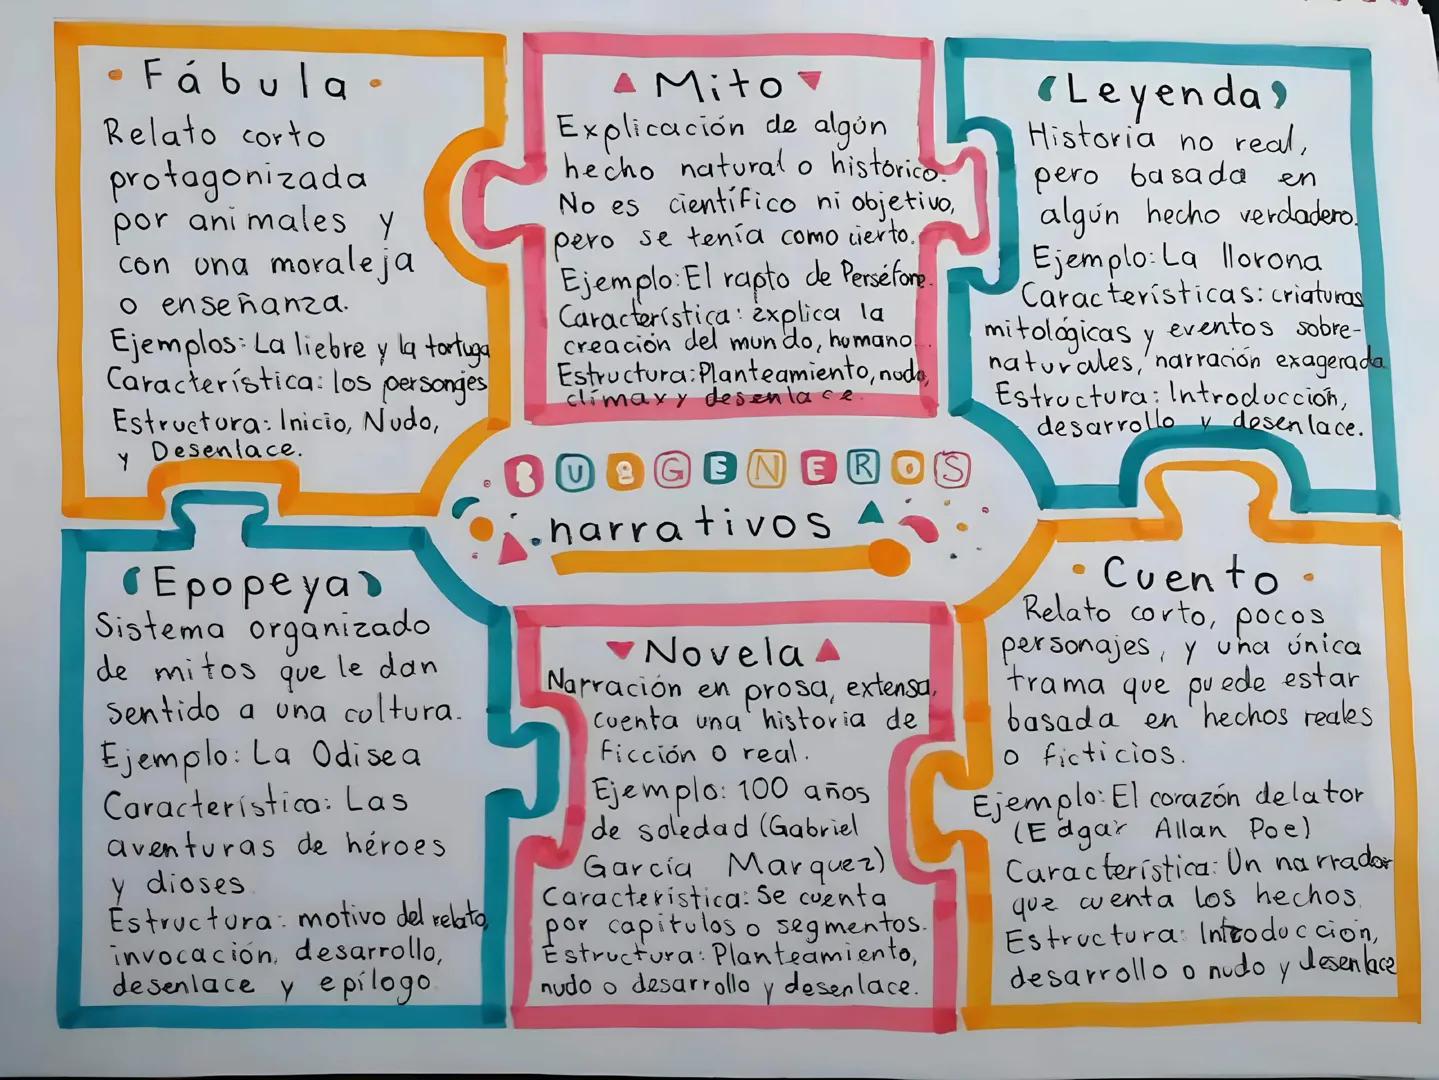 Fábula
Relato corto
protagonizada
por animales y
con una moraleja
o enseñanza.
Ejemplos: La liebre y la tortuga
Característica: los personjes
Estructura: Inicio, Nudo,
y Desenlace.
Mito
Explicación de algún
hecho natural o histórico.
No es científico ni objetivo,
pero se tenía como cierto.
Ejemplo: El rapto de Perséfone.
Característica: explica la
creación del mundo, humano...
Estructura: Planteamiento, nudo,
clímax y desenlace.
Leyenda
Historia no real,
pero basada en
algún hecho verdadero.
Ejemplo: La llorona
Características: criaturas
mitológicas y eventos sobre-
naturales, narración exagerada
Estructura: Introducción,
desarrollo y desenlace.
SUBGENEROS
narrativos
Epopeya
Sistema organizado
de mitos que le dan
sentido a una cultura.
Ejemplo: La Odisea
Característica: Las
aventuras de héroes
y dioses.
Estructura: motivo del relato,
invocación, desarrollo,
desenlace y epílogo.
Novela
Narración en prosa, extensa,
cuenta una historia de
ficción o real.
Ejemplo: 100 años
de soledad (Gabriel
García Marquez)
Característica: Se cuenta
por capitulos o segmentos.
Estructura: Planteamiento,
nudo o desarrollo y desenlace.
Cuento
Relato corto, pocos
personajes, y una única
trama que puede estar
basada en hechos reales
o ficticios.
Ejemplo: El corazón delator
(Edgar Allan Poe)
Característica: Un narrador
que cuenta los hechos.
Estructura: Introduccion,
desarrollo o nudo y desenlace